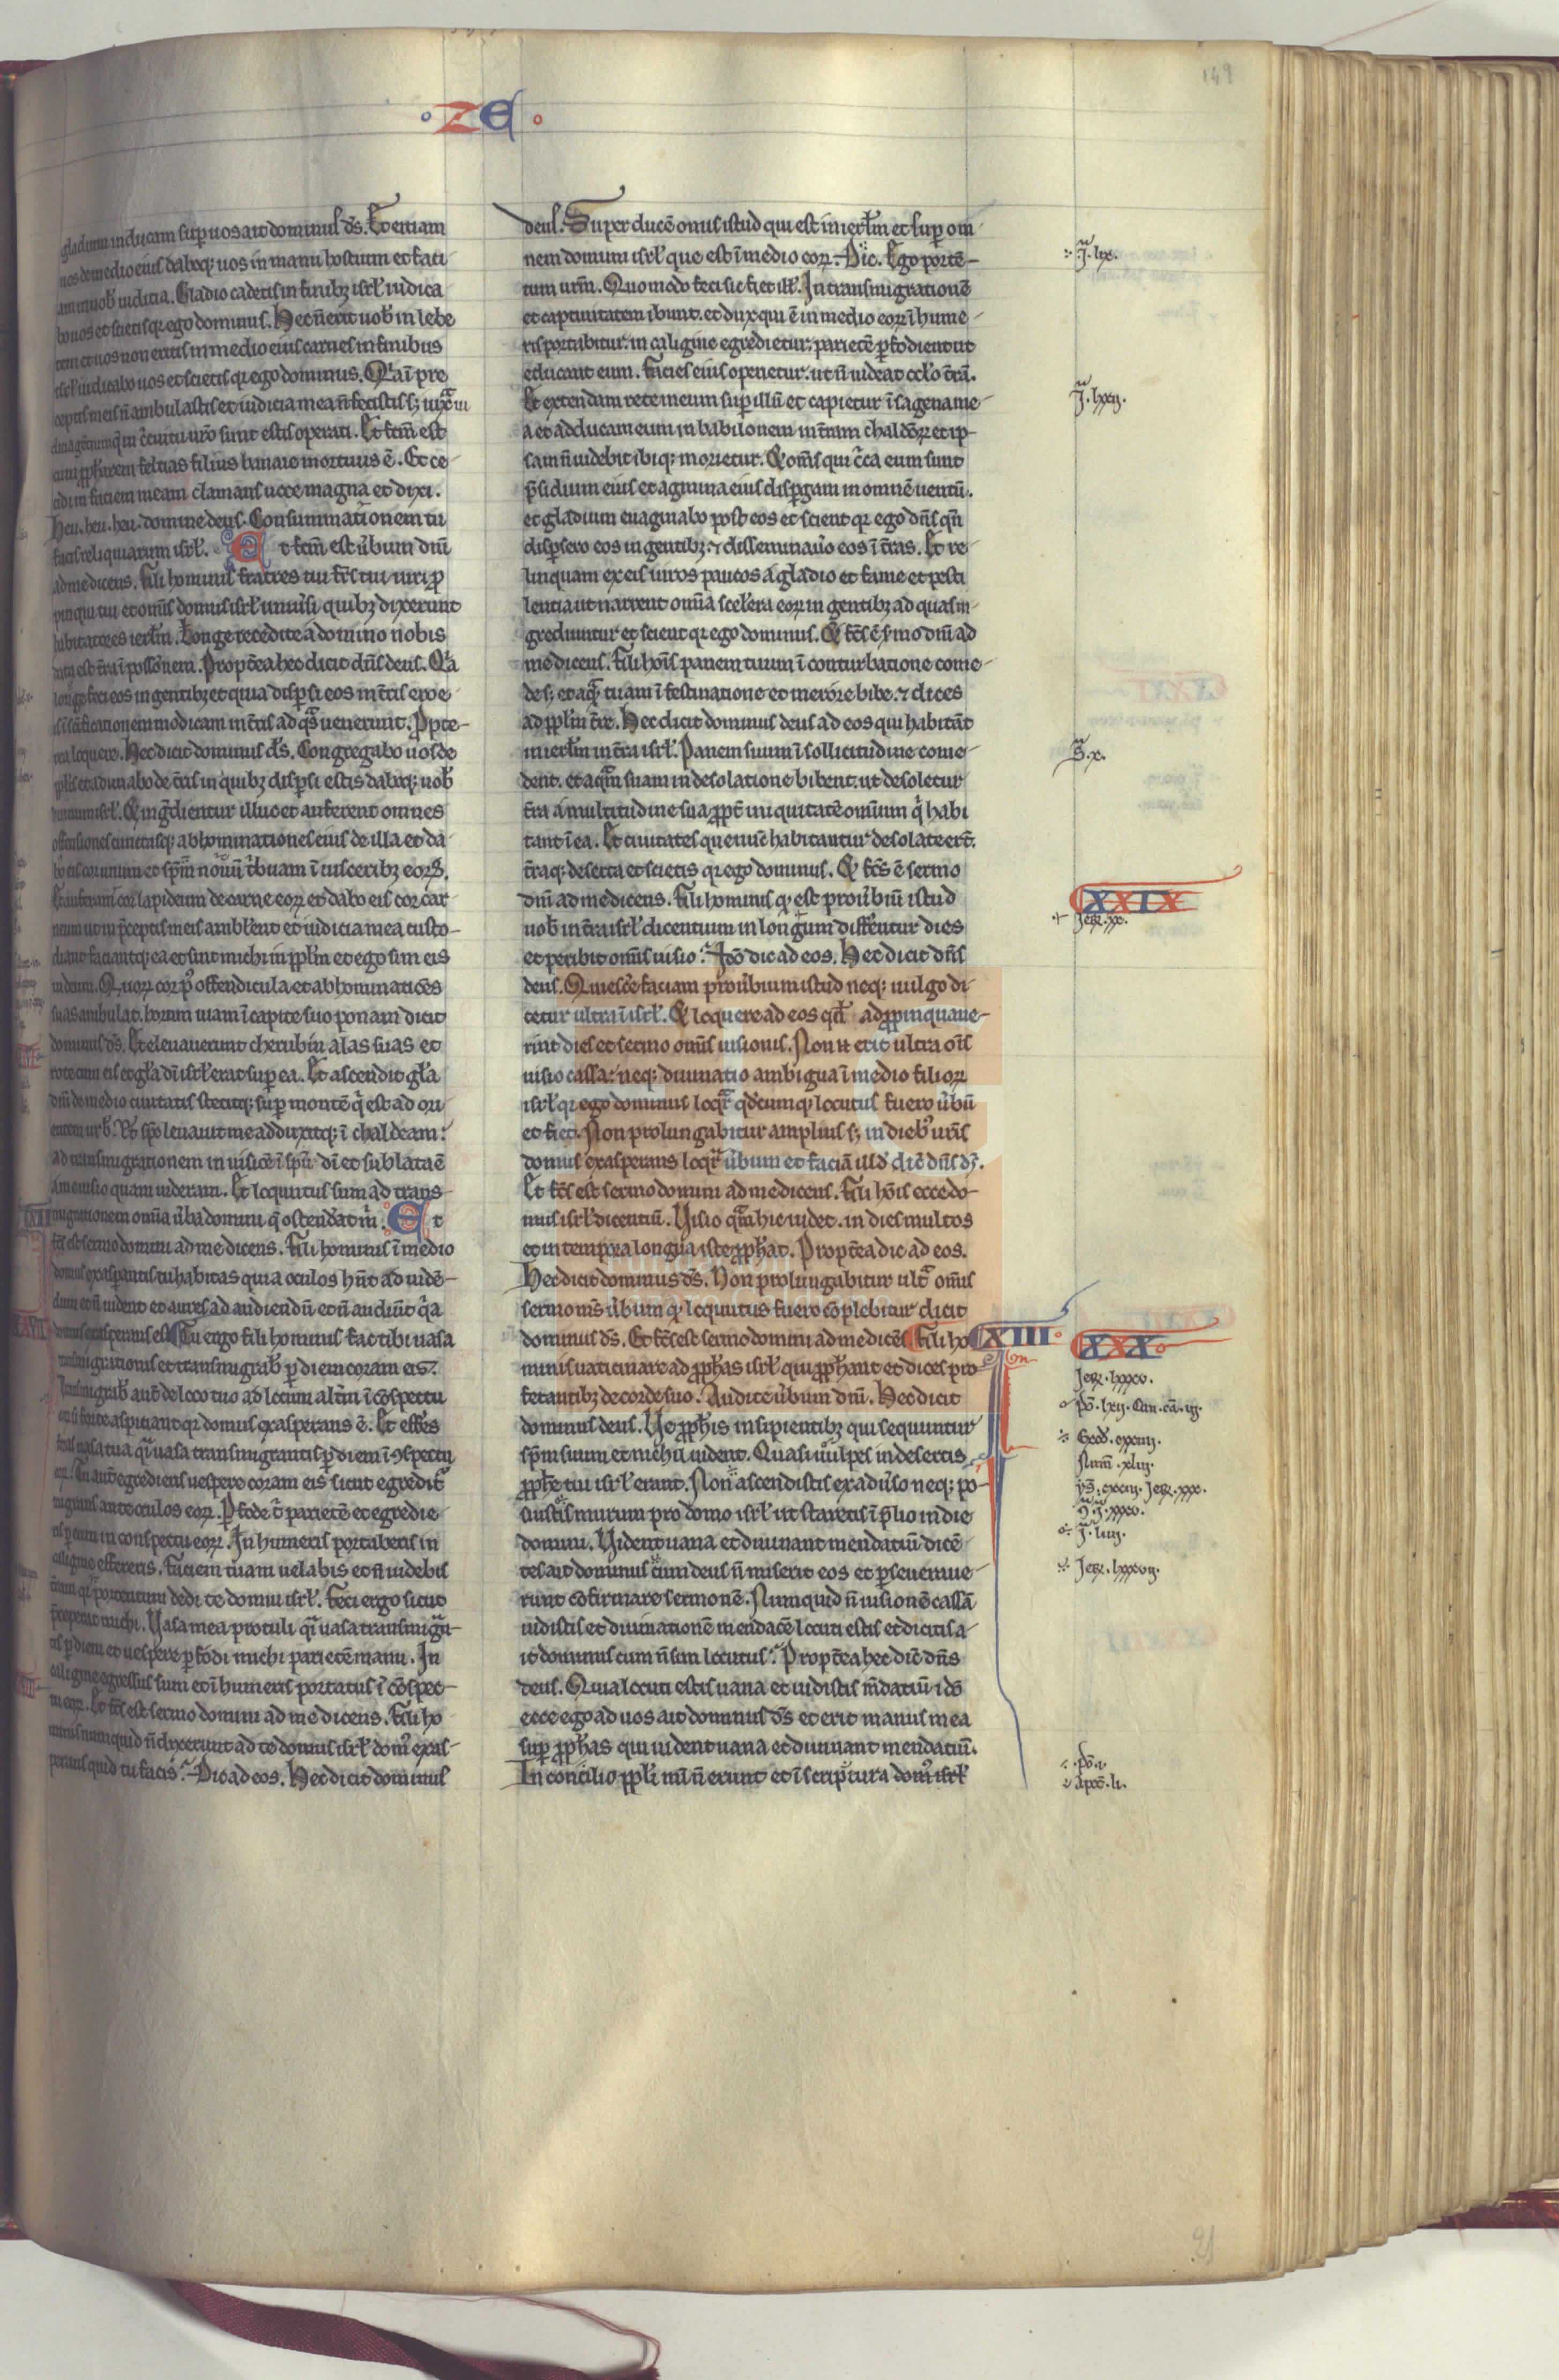 149
· ZE ·
gladium inducam sup uos ait dominus ds̄. Et eiciam
uos de medio eius daboq; uos in manu hostium et faci
am in uob̄ iudicia. Gladio cadetis in finibȝ isrł iudica
bo uos et scietis qr ego dominus. Hec n̄ erit uob̄ in lebe
tem et uos non eritis in medio eius carnes in finibus
isrł iudicabo uos et scietis qr ego dominus. Qꝛ aī pre
ceptis meis n̄ ambulastis et iudicia mea n̄ fecistis sȝ iuxta iu
dicia gentium q̄ in c̄cuitu ur̄o sunt estis operati. Et fcm̄ est
cum ꝓphetarem feltias filius banaie mortuus ē. Et ce
cidi in faciem meam clamans uoce magna et dixi.
Heu. heu. heu. domine deus. Consummationem tu
facis reliquiarum isrł. Et fcm̄ est ūbum dn̄i
ad me dicens. Fili hominis fratres tui frēs tui uiri ꝓ
pinqui tui et om̄is domus isrł uniūsi quibȝ dixerunt
habitatores ierłm. Longe recedite a domino nobis
data est t̄ra ī possōnem. Propt̄ea hec dicit dn̄s deus. Qꝛa
longe feci eos in gentibȝ et quia dispsi eos in t̄ris ero e
is ī sc̄ificationem modicam in t̄ris ad qs̄ uenerunt. Ppte
rea loquere. Hec dicit dominus ds̄. Congregabo uos de
pplis et adunabo de t̄ris in quibȝ dispsi estis daboq; uob̄
humum isrł. Et ingr̄dientur illuc et auferent omnes
offensiones cunctasq; abhominationes eius de illa et da
bo eis cor unum et sp̄m nouū t̄buam ī uisceribȝ eorꝝ.
Et auferam cor lapideum de carne eorꝝ et dabo eis cor car
neum ut in p̄ceptis meis amblent et iudicia mea custo-
diant faciantq; ea et sint michi in ppłm et ego sim eis
in deum. Quorꝝ cor p̄ offendicula et abhominatiōes
suas ambulat. horum uiam ī capite suo ponam dicit
dominus ds̄. Et eleuauerunt cherubin alas suas et
rote cum eis et gła dī isrł erat sup ea. Et ascendit gła
dn̄i de medio ciuitatis stetitq; sup montē q̄ est ad ori
entem urb̄. Et sp̄c leuauit me adduxitq; ī chaldeam:
ad transmigrationem in uisiōe ī spū dī et sublata ē
a me uisio quam uideram. Et loquutus sum ad trans
migrationem omīa ūba domini q̄ ostenderat m̄. Et
fcs̄ est sermo domini ad me dicens. Fili hominis ī medio
domus exaspantis tu habitas qui a oculos hn̄t ad uidē-
dum et n̄ uident et aures ad audiendū et n̄ audiūt q̄a
domus exasperans est. Tu ergo fili hominis fac tibi uasa
transmigrationis et transmigrab̄ p diem coram eis.
Transmigrab̄ aut̄ de loco tuo ad locum altm̄ ī cōspectu
eorꝝ si forte aspiciant qr domus exasperans ē. Et effēs
foras uasa tua qi uasa transmigrantis p diem ī ꝯspectu
eorꝝ. Tu aut̄ egredieris uespere coram eis sicut egredit̄
migrans ante oculos eorꝝ. Pfode t̄ parietē et egredie
ris p eum in conspectu eorꝝ. In humeris portaberis in
caligine effereris. Faciem tuam uelabis et n̄ uidebis
t̄ram qꝛ portentum dedi te domui isrł. Feci ergo sicut
p̄ceperat michi. Uasa mea protuli qi uasa transmigrā-
tis p diem et uespere pfōdi michi parietē manu. In
caligine egressus sum et ī humeris portatus ī cōspec-
tu eorꝝ. Et fcs̄ est sermo domini ad me dicens. Fili ho
minis numquid n̄ dixerunt ad te domus isrł dom9 exas-
perans quid tu facis. Dic ad eos. Hec dicit dominus
deus. Super ducē onus istud qui est in ierłm et sup om
nem domum isrł que est ī medio eorꝝ. Dic. Ego portē-
tum ur̄m. Quomodo feci sic fiet illis. In transmigrationē
et captiuitatem ibunt. et dux qui ē in medio eorꝝ ī hume-
ris portabitur. in caligine egredietur. parietē pfodient ut
educant eum. Facies eius operietur. ut n̄ uideat oclo t̄ra̅.
Et extendam rete meum sup illū et capietur ī sagena me-
a et adducam eum in babilonem in t̄ram chaldeorꝝ et ip-
sam n̄ uidebit ibiq; morietur. Et om̄s qui c̄ca eum sunt
p̄sidium eius et agmina eius dispgam in omnē uentū.
et gladium euaginabo post eos et scient qr ego dn̄s qn̄
dispsero eos in gentibȝ ⁊ disseminauo eos ī t̄ras. Et re
linquam ex eis uiros paucos a gladio et fame et pesti
lentia ut narrent omīa scelera eorꝝ in gentibȝ ad quas in-
gredientur et scient qr ego dominus. Et fcs̄ ē s̄mo dn̄i ad
me dicens. Fili hoīs panem tuum ī conturbatione come-
des. et aq̄m tuam ī festinatione et merore bibe. ⁊ dices
ad ppłm t̄re. Hec dicit dominus deus ad eos qui habitāt
in ierłm in t̄ra isrł. Panem suum ī sollicitudine come-
dent. et aq̄m suam in desolatione bibent. ut desoletur
t̄ra a multitudine sua ꝓpt̄ iniquitatē omīum q̄ habi
tant ī ea. Et ciuitates que nūc habitantur desolate ert̄.
t̄raq; deserta et scietis qr ego dominus. Et fcs̄ ē sermo
dn̄i ad me dicens. Fili hominis qd̄ est prouībiū istud
uob̄ in t̄ra isrł dicentium in longum differētur dies
et peribit om̄is uisio. Iō dic ad eos. Hec dicit dn̄s
deus. Quiesc̄e faciam prouībium istud neq; uulgo di-
cetur ultra ī isrł. Et loquere ad eos qd̄ adꝓpinquaue-
rint dies et sermo om̄is uisionis. Non n̄ erit ultra oīs
uisio cassa. neq; diuinatio ambigua ī medio filiorꝝ
isrł qr ego dominus loqr̄ qd̄cumq; locutus fuero ūbū
et fiet. Non prolungabitur amplius sȝ in dieb9 ur̄is
domus exasperans loqr̄ ūbum et faciā illd̄ dic̄ dn̄s ds̄.
Et fcs̄ est sermo domini ad me dicens. Fili hoīs ecce do-
mus isrł dicentiū. Uisio qm̄ hic uidet. in dies multos
et in tempora longua iste ꝓphat. Propt̄ea dic ad eos.
Hec dicit dominus ds̄. Non prolungabitur ult̄ om̄is
sermo m̄s ūbum qd̄ loquutus fuero cōplebitur dicit
dominus ds̄. Et fcs̄ est sermo domini ad me dicēs Fili ho
minis uaticinare ad ꝓphas isrł qui ꝓphant et dices pro
fetantibȝ de corde suo. Audite ūbum dn̄i. Hec dicit
dominus deus. Ue ꝓphis insipientibȝ qui sequuntur
sp̄m suum et nichil uident. Quasi uulpes in desertis
ꝓphe tui isrł erant. Non ascendistis ex adūso neq; po-
suistis murum pro domo isrł ut staretis ī p̄lio in die
domini. Uident uana et diuinant mendatiū dicē
tes ait dominus cum deus n̄ miserit eos et pseuerue
runt cōfirmare sermonē. Numquid n̄ uisionē cassā
uidistis et diuinationē mendacē locuti estis et dicitis a
it dominus cum n̄ sim locutus. Propt̄ea hec dic̄ dn̄s
deus. Quia locuti estis uana et uidistis m̄datiū idō
ecce ego ad uos ait dominus ds̄ et erit manus mea
sup ꝓphas qui uident uana et diuinant mendatiū.
In concilio ppli mī n̄ erunt et ī scriptura dom9 isrł
J. lix.
J. lxxij.
S. x.
XXIX
Jeȝ. xx.
XIII
XXX
Jeȝ. lxxxv.
pō. lxij. Can. cā. iij.
Exod. cxciij.
Num̄. xliij.
J. liiij.
Jeȝ. lxxxvij.
pō. v.
Apoc̄. li.